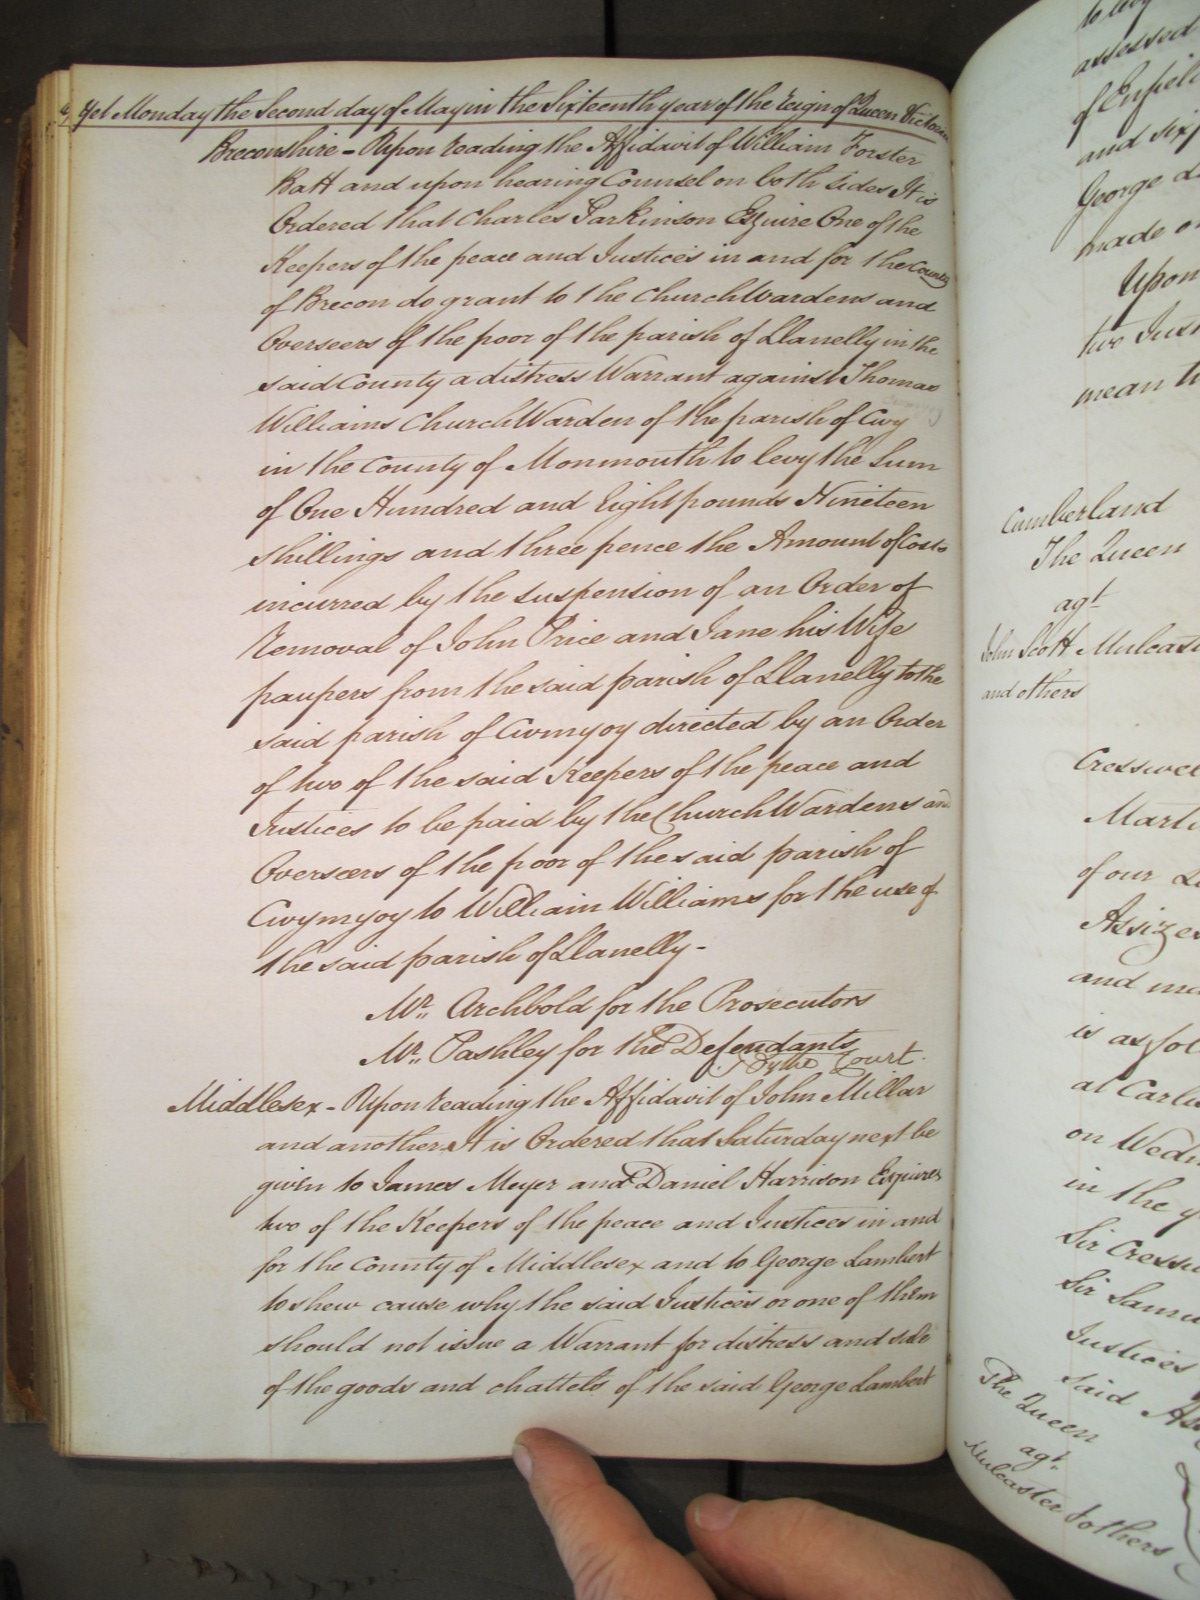 Yet Monday the Second day of May in the Sixteenth year of the reign of Queen Victoria
Breconshire - Upon reading the Affidavit of William Forster
Batt and upon hearing Counsel on both sides It is
Ordered that Charles Parkinson Esquire One of the
Keepers of the peace and Justices in and for the County
of Brecon do grant to the Churchwardens and
Overseers of the poor of the parish of Llanelly in the
said County a distress Warrant against Thomas
Williams Church Warden of the parish of Cwy
in the County of Monmouth to levy the Sum
of One Hundred and Eight pounds Nineteen
shillings and three pence the Amount of Costs
incurred by the suspension of an Order of
Removal of John Price and Jane his Wife
paupers from the said parish of Llanelly to the
said parish of Cwmyoy directed by an Order
of two of the said Keepers of the peace and
Justices to be paid by the Church Wardens and
Overseers of the poor of the said parish of
Cwymyoy to William Williams for the use of
the said parish of Llanelly -
Mr. Archbold for the Prosecutors
Mr. Pashley for the Defendants
By the Court.
Middlesex - Upon reading the Affidavit of John Millar
and another It is Ordered that Saturday next be
given to James Meyer and Daniel Harrison Esquires
two of the Keepers of the peace and Justices in and
for the County of Middlesex and to George Lambert
to shew cause why the said Justices or one of them
should not issue a Warrant for distress and sale
of the goods and chattels of the said George Lambert
to levy
assessed
of Enfiel
and six
George
made
Upon
two Just
mean
Cumberland
The Queen
agt
John Scott Mulcas
and others
Cresswel
Marti
of our
Assizes
and
is as fol
at Carli
on Wedn
in the y
Sir Cressw
Sir Samu
Justices
said As
The Queen
agt
Mulcaster & others